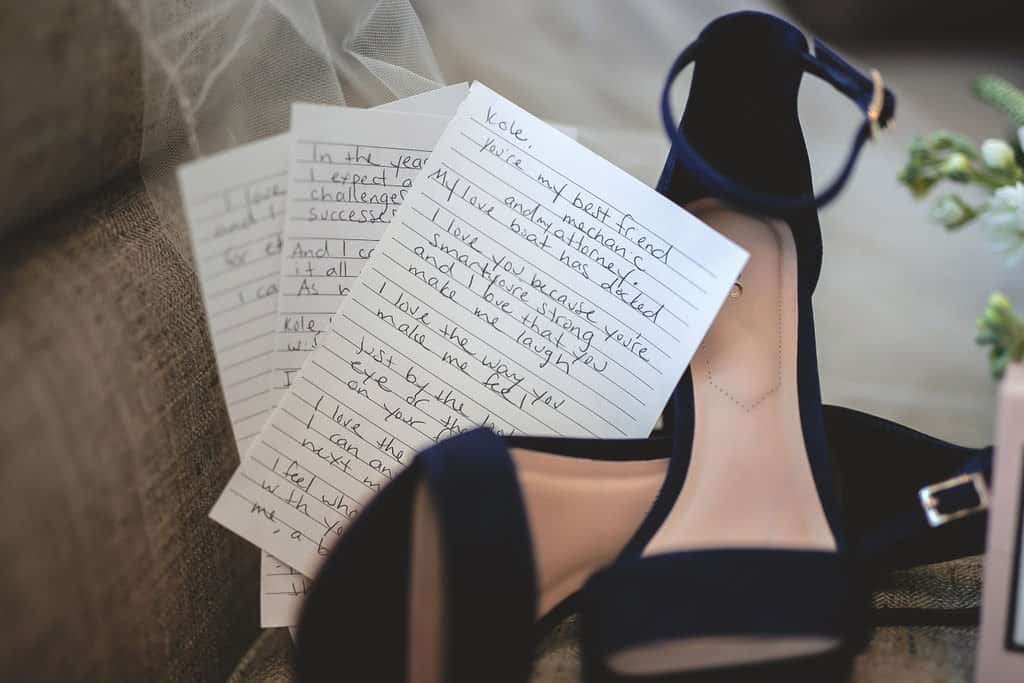 Kole,
You're my best friend
my mechanic
and my attorney.
My love boat has docked
I love you because you're
smart, you're strong
and I love that you
make me laugh
I love the way you
make me feel
Just by the
eye or the
on your
I love the
I can an
next m
I feel who
with yo
me, a b
In the yea
I expect a
challenges
successes
And I c
it all
As h
Kole
wi
I
I love
and
for
I ca